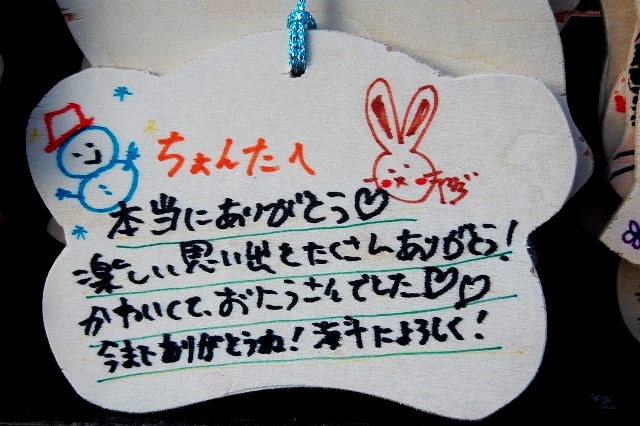 ちょんたへ
本当にありがとう♡
楽しい思い出をたくさんありがとう!
かわいくて、おりこうさんでした♡♡
今までありがとうね!海斗によろしく!